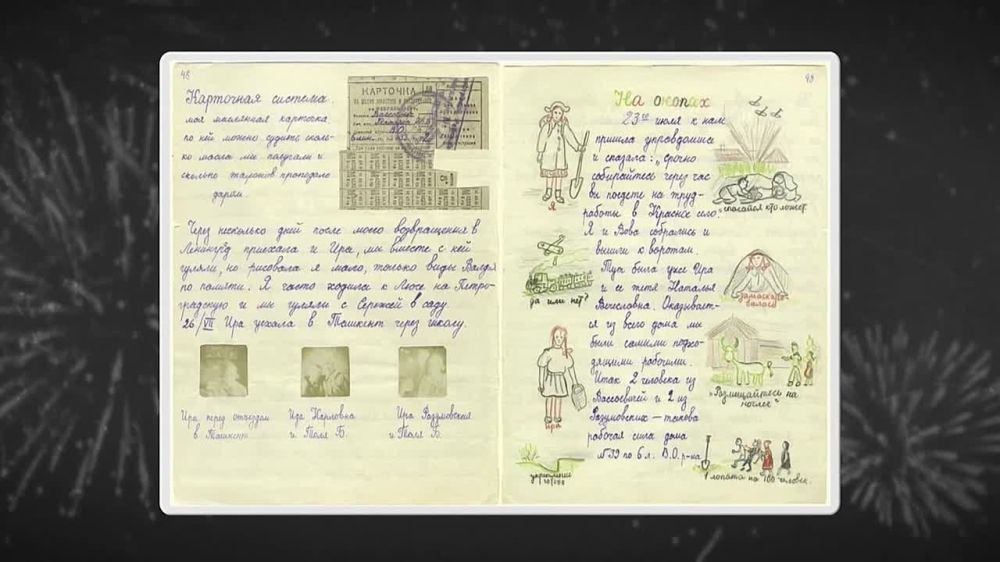 48
Карточная система.
моя масленная карточка,
по ней можно судить сколь-
ко масла мы получали и
сколько талонов пропадало
даром.
КАРТОЧКА
Через несколько дней после моего возвращения в
Ленинград приехала и Ира, мы вместе с ней
гуляли, но рисовала я мало, только виды Валдая
по памяти. Я часто ходила к Люсе на Петро-
градскую и мы гуляли с Сережей в саду.
26/VII Ира уехала в Ташкент через школу.
Ира перед отъездом
в Ташкент
Ида Карловна
и Толя Б.
Ира Разумовская
и Толя Б.
49
На окопах
23го июля к нам
пришла управдомша
и сказала: „срочно
собирайтесь через час
вы поедете на труд-
работы в Красное село.
Я и Вова собрались и
вышли к воротам.
Тут была уже Ира
и ее тетя Наталья
Вячеславна. Оказывает-
ся из всего дома мы
были самыми подхо-
дящими рабочими.
Итак 2 человека из
и 2 из
Разумовских — такова
рабочая сила дома
№39 по 6 л. В.О. р-на
я
да или нет?
Ира
укрепление
"спасайся кто может"
"Размещайтесь на
ночлег"
лопата на 100 человек.